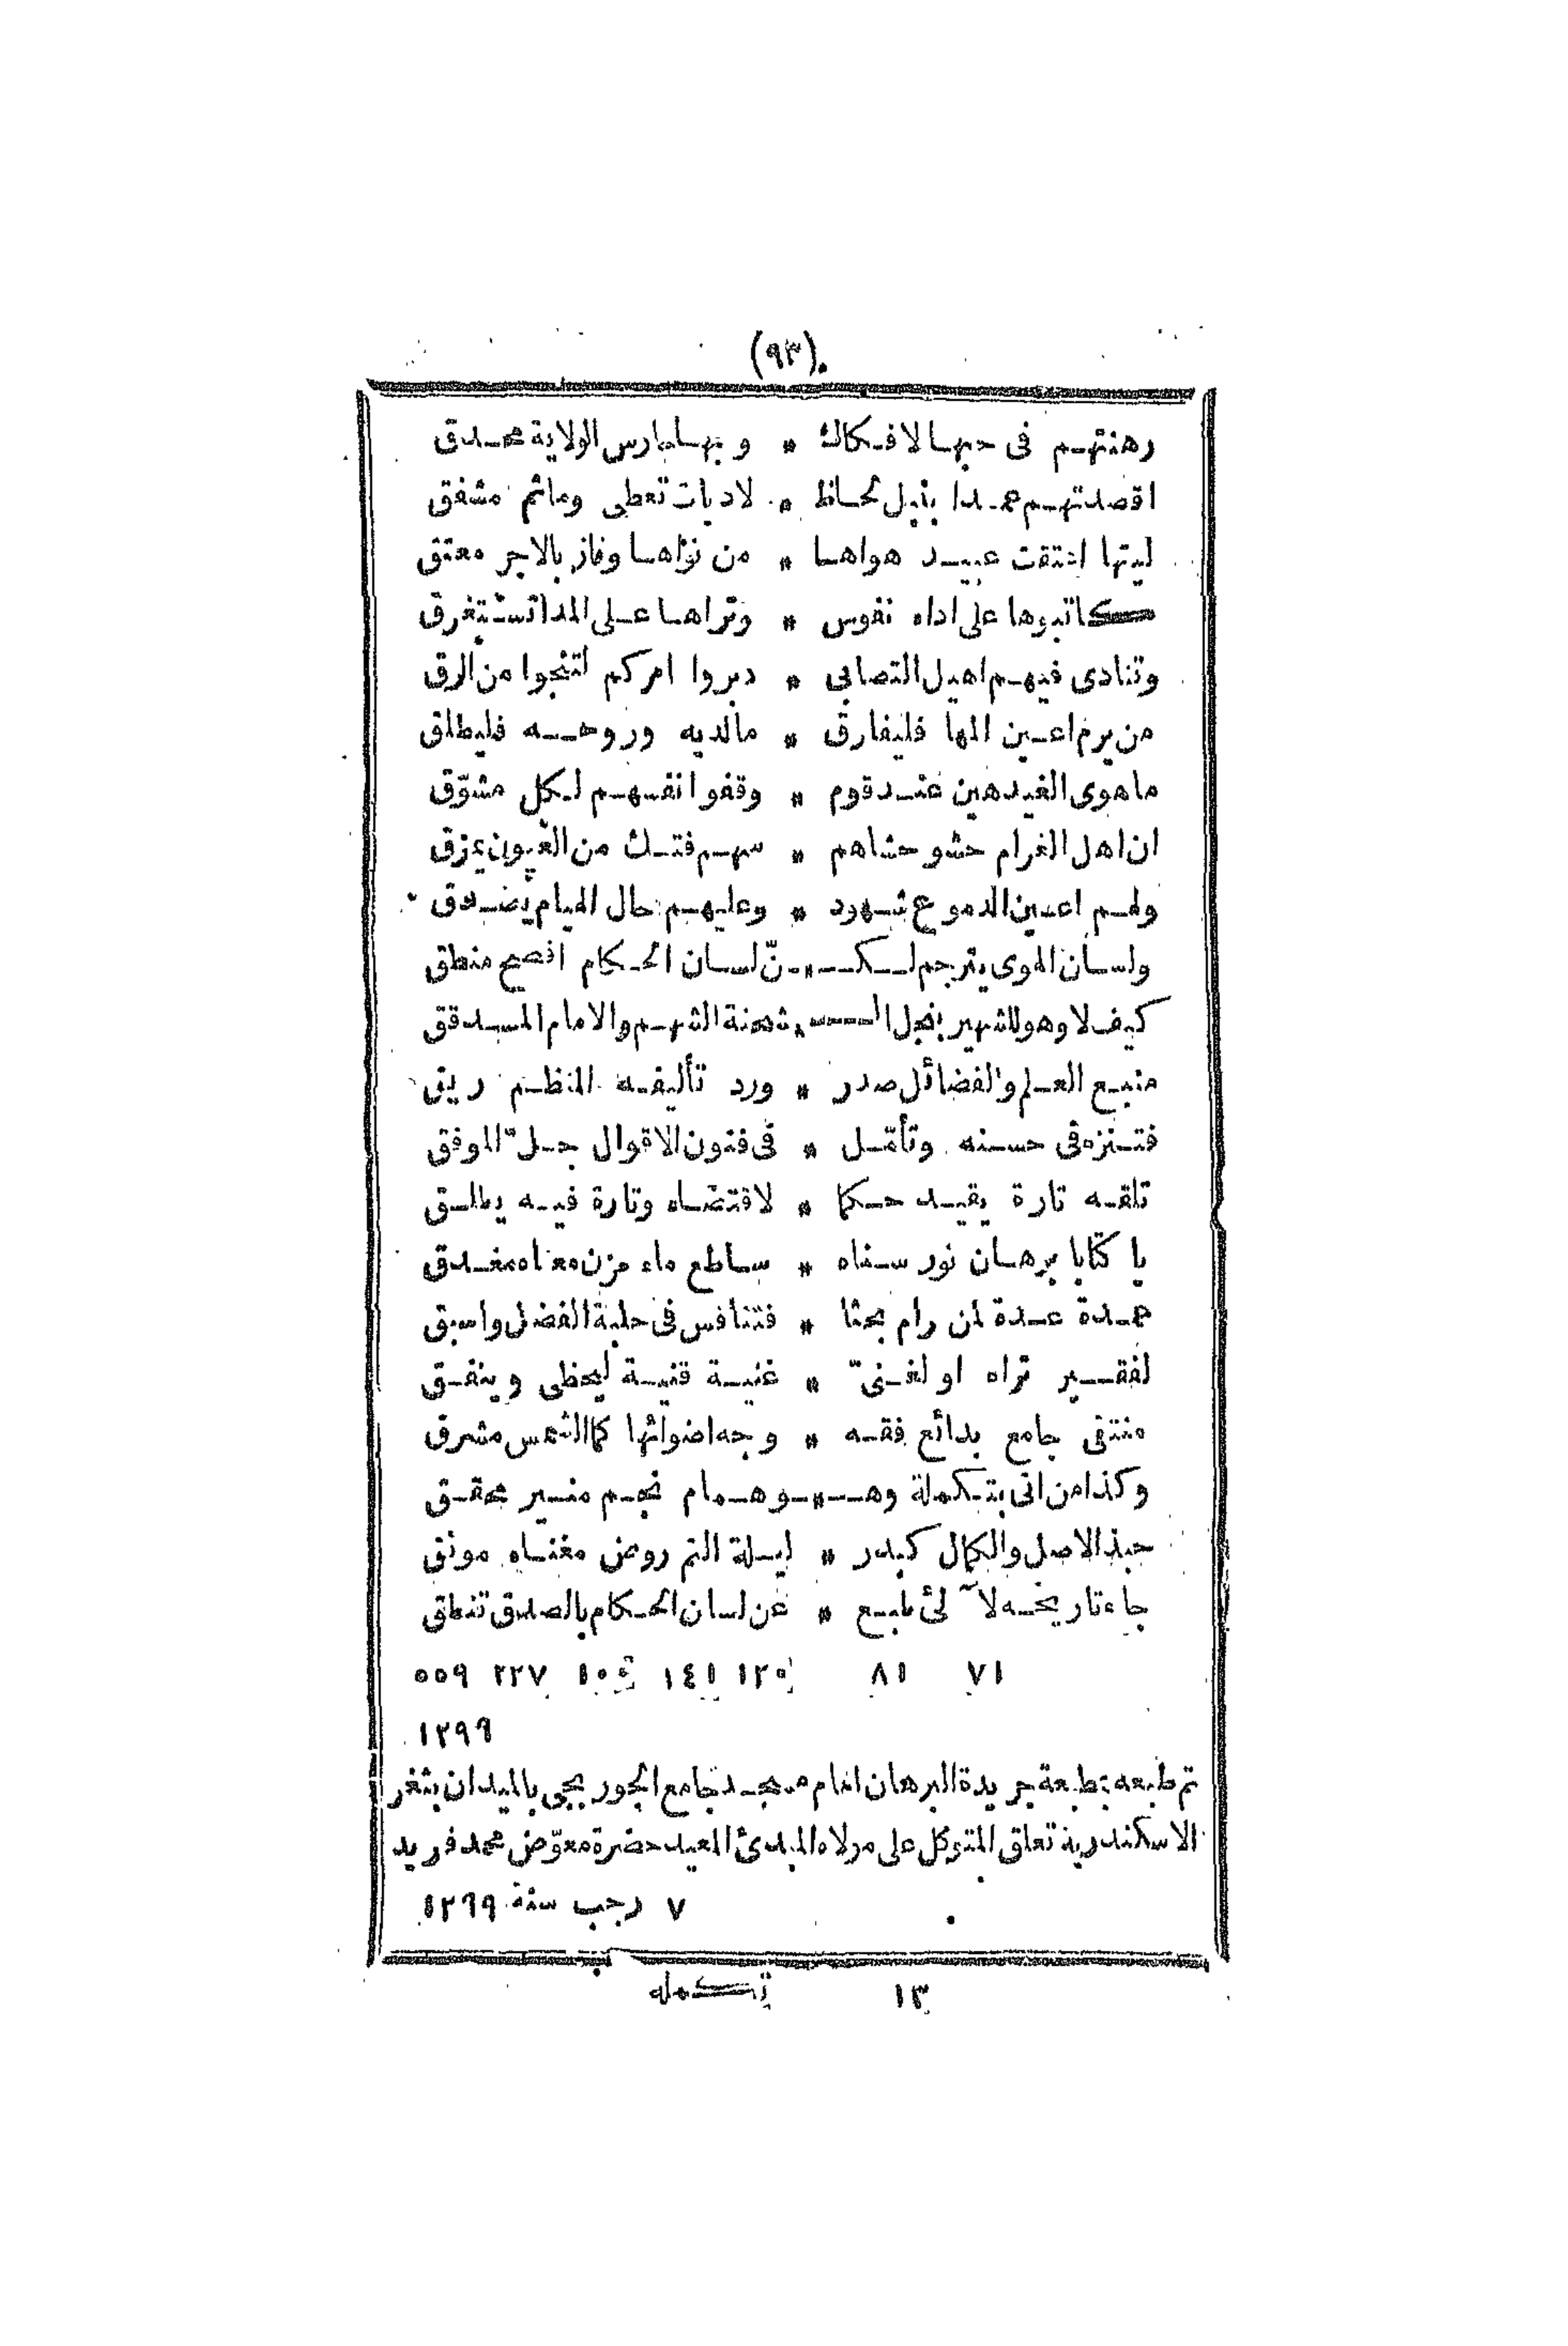 (٩٣)
رهنتهم فى حبها لا فكاك * وبها حارس الولاية محدق
اقصدتهم عمدا بنبل لحاظ * لا ديات تعطى وما ثم مشفق
ليتها اعتقت عبيد هواها * من نواها وفاز بالاجر معتق
كاتبوها على اداء نفوس * وتراها على المدا تستغرق
وتنادى فيهم اهيل التصابى * دبروا امركم لتنجوا من الرق
من يرم اعين المها فليفارق * ما لديه وروحه فليطلق
ما هوى الغيد هين عند قوم * وقفوا انفسهم لكل مشوّق
ان اهل الغرام حشو حشاهم * سهم فتك من العيون يمزق
ولهم اعين الدموع شهود * وعليهم حال الهيام يصدق
ولسان الهوى يترجم لكنّ لسان الحكام افصح منطق
كيف لا وهو للشهير بنجل الشحنة الشهم والامام المدقق
منبع العلم والفضائل صدر * ورد تأليفه المنظم ريق
فتنزه فى حسنه وتأمّل * فى فنون الاقوال جلّ الموفق
تلقه تارة يقيد حكما * لاقتضاه وتارة فيه يطلق
يا كتابا برهان نور سناه * ساطع ماء مزن معناه مغدق
عمدة عدة لمن رام بحثا * فتنافس فى حلبة الفضل واسبق
لفقير تراه او لغنىّ * غنية قنية ليحظى وينفق
منتقى جامع بدائع فقه * وجه اضوائها كما الشمس مشرق
وكذا من اتى بتكملة وهو همام نجم منير محقق
حبذ الاصل والكمال كبدر * ليلة التم روض مغناه مونق
جاء تاريخه لآلئ طبع * عن لسان الحكام بالصدق تنطق
٧١ ٨١ ١٢٠ ١٤١ ١٠١ ٢٢٧ ٥٥٩
١٢٩٩
تم طبعه بمطبعة جريدة البرهان امام مسجد جامع الجوربجى بالميدان بثغر
الاسكندرية تعلق المتوكل على مولاه المبدئ المعيد حضرة معوّض محمد فريد
٧ رجب سنة ١٢٩٩
١٣ تكمله